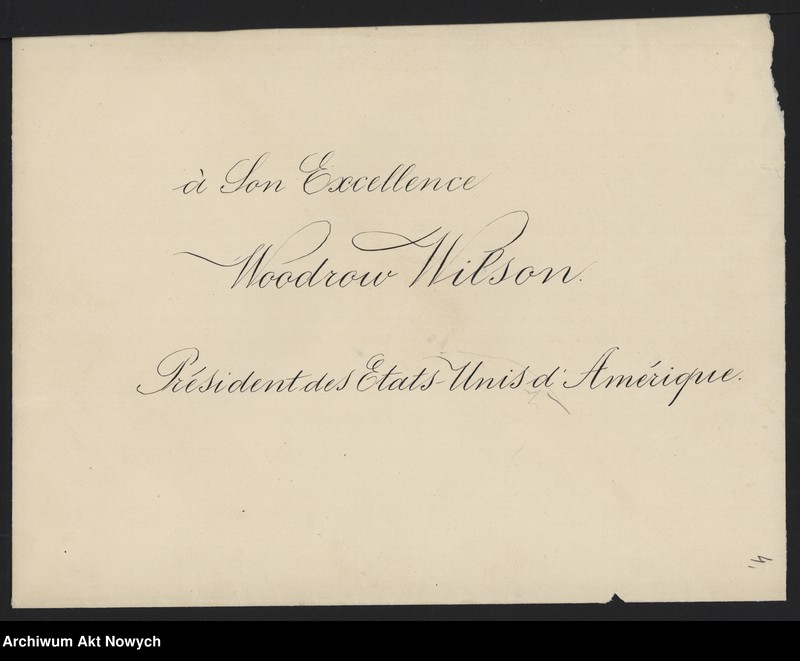 à Son Excellence
Woodrow Wilson.
Président des Etats-Unis d'Amérique.
4,
Archiwum Akt Nowych